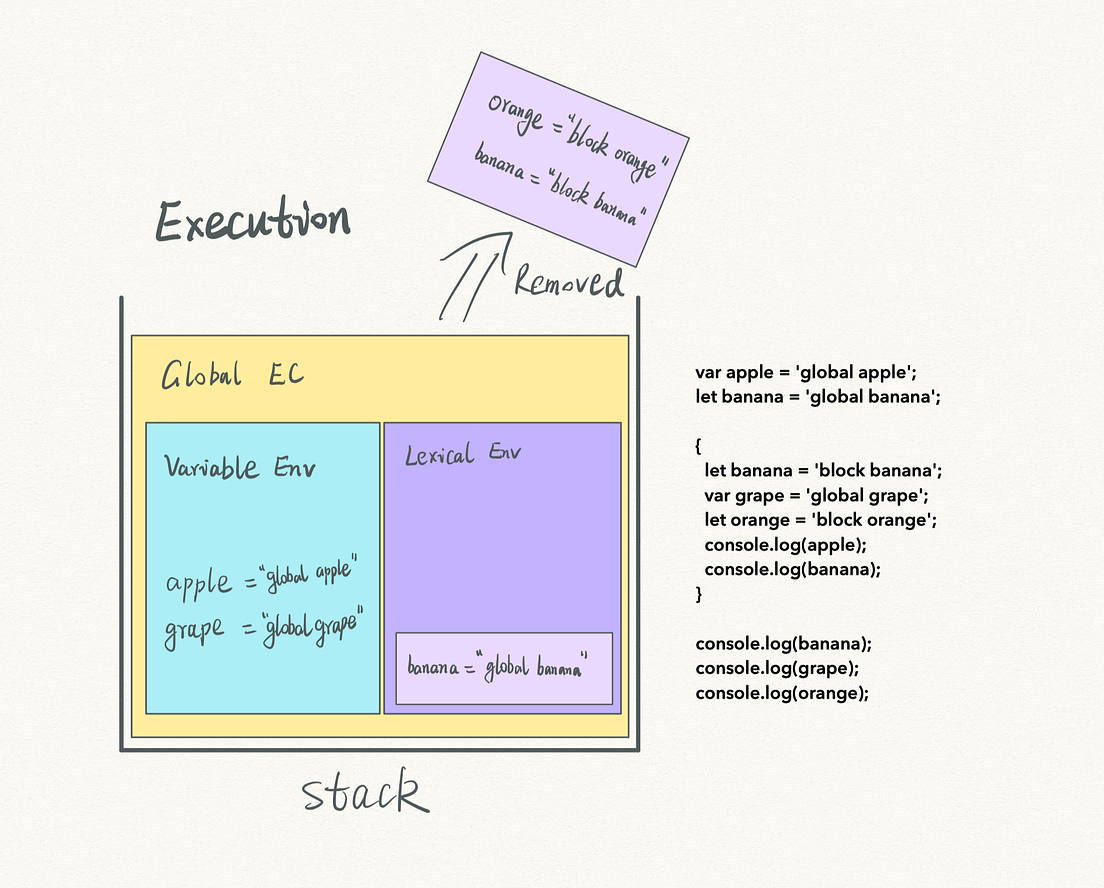 orange = "block orange"
banana = "block banana"
Execution
Removed
Global EC
Variable Env
Lexical Env
apple = "global apple"
grape = "global grape"
banana = "global banana"
stack
var apple = 'global apple';
let banana = 'global banana';
{
let banana = 'block banana';
var grape = 'global grape';
let orange = 'block orange';
console.log(apple);
console.log(banana);
}
console.log(banana);
console.log(grape);
console.log(orange);